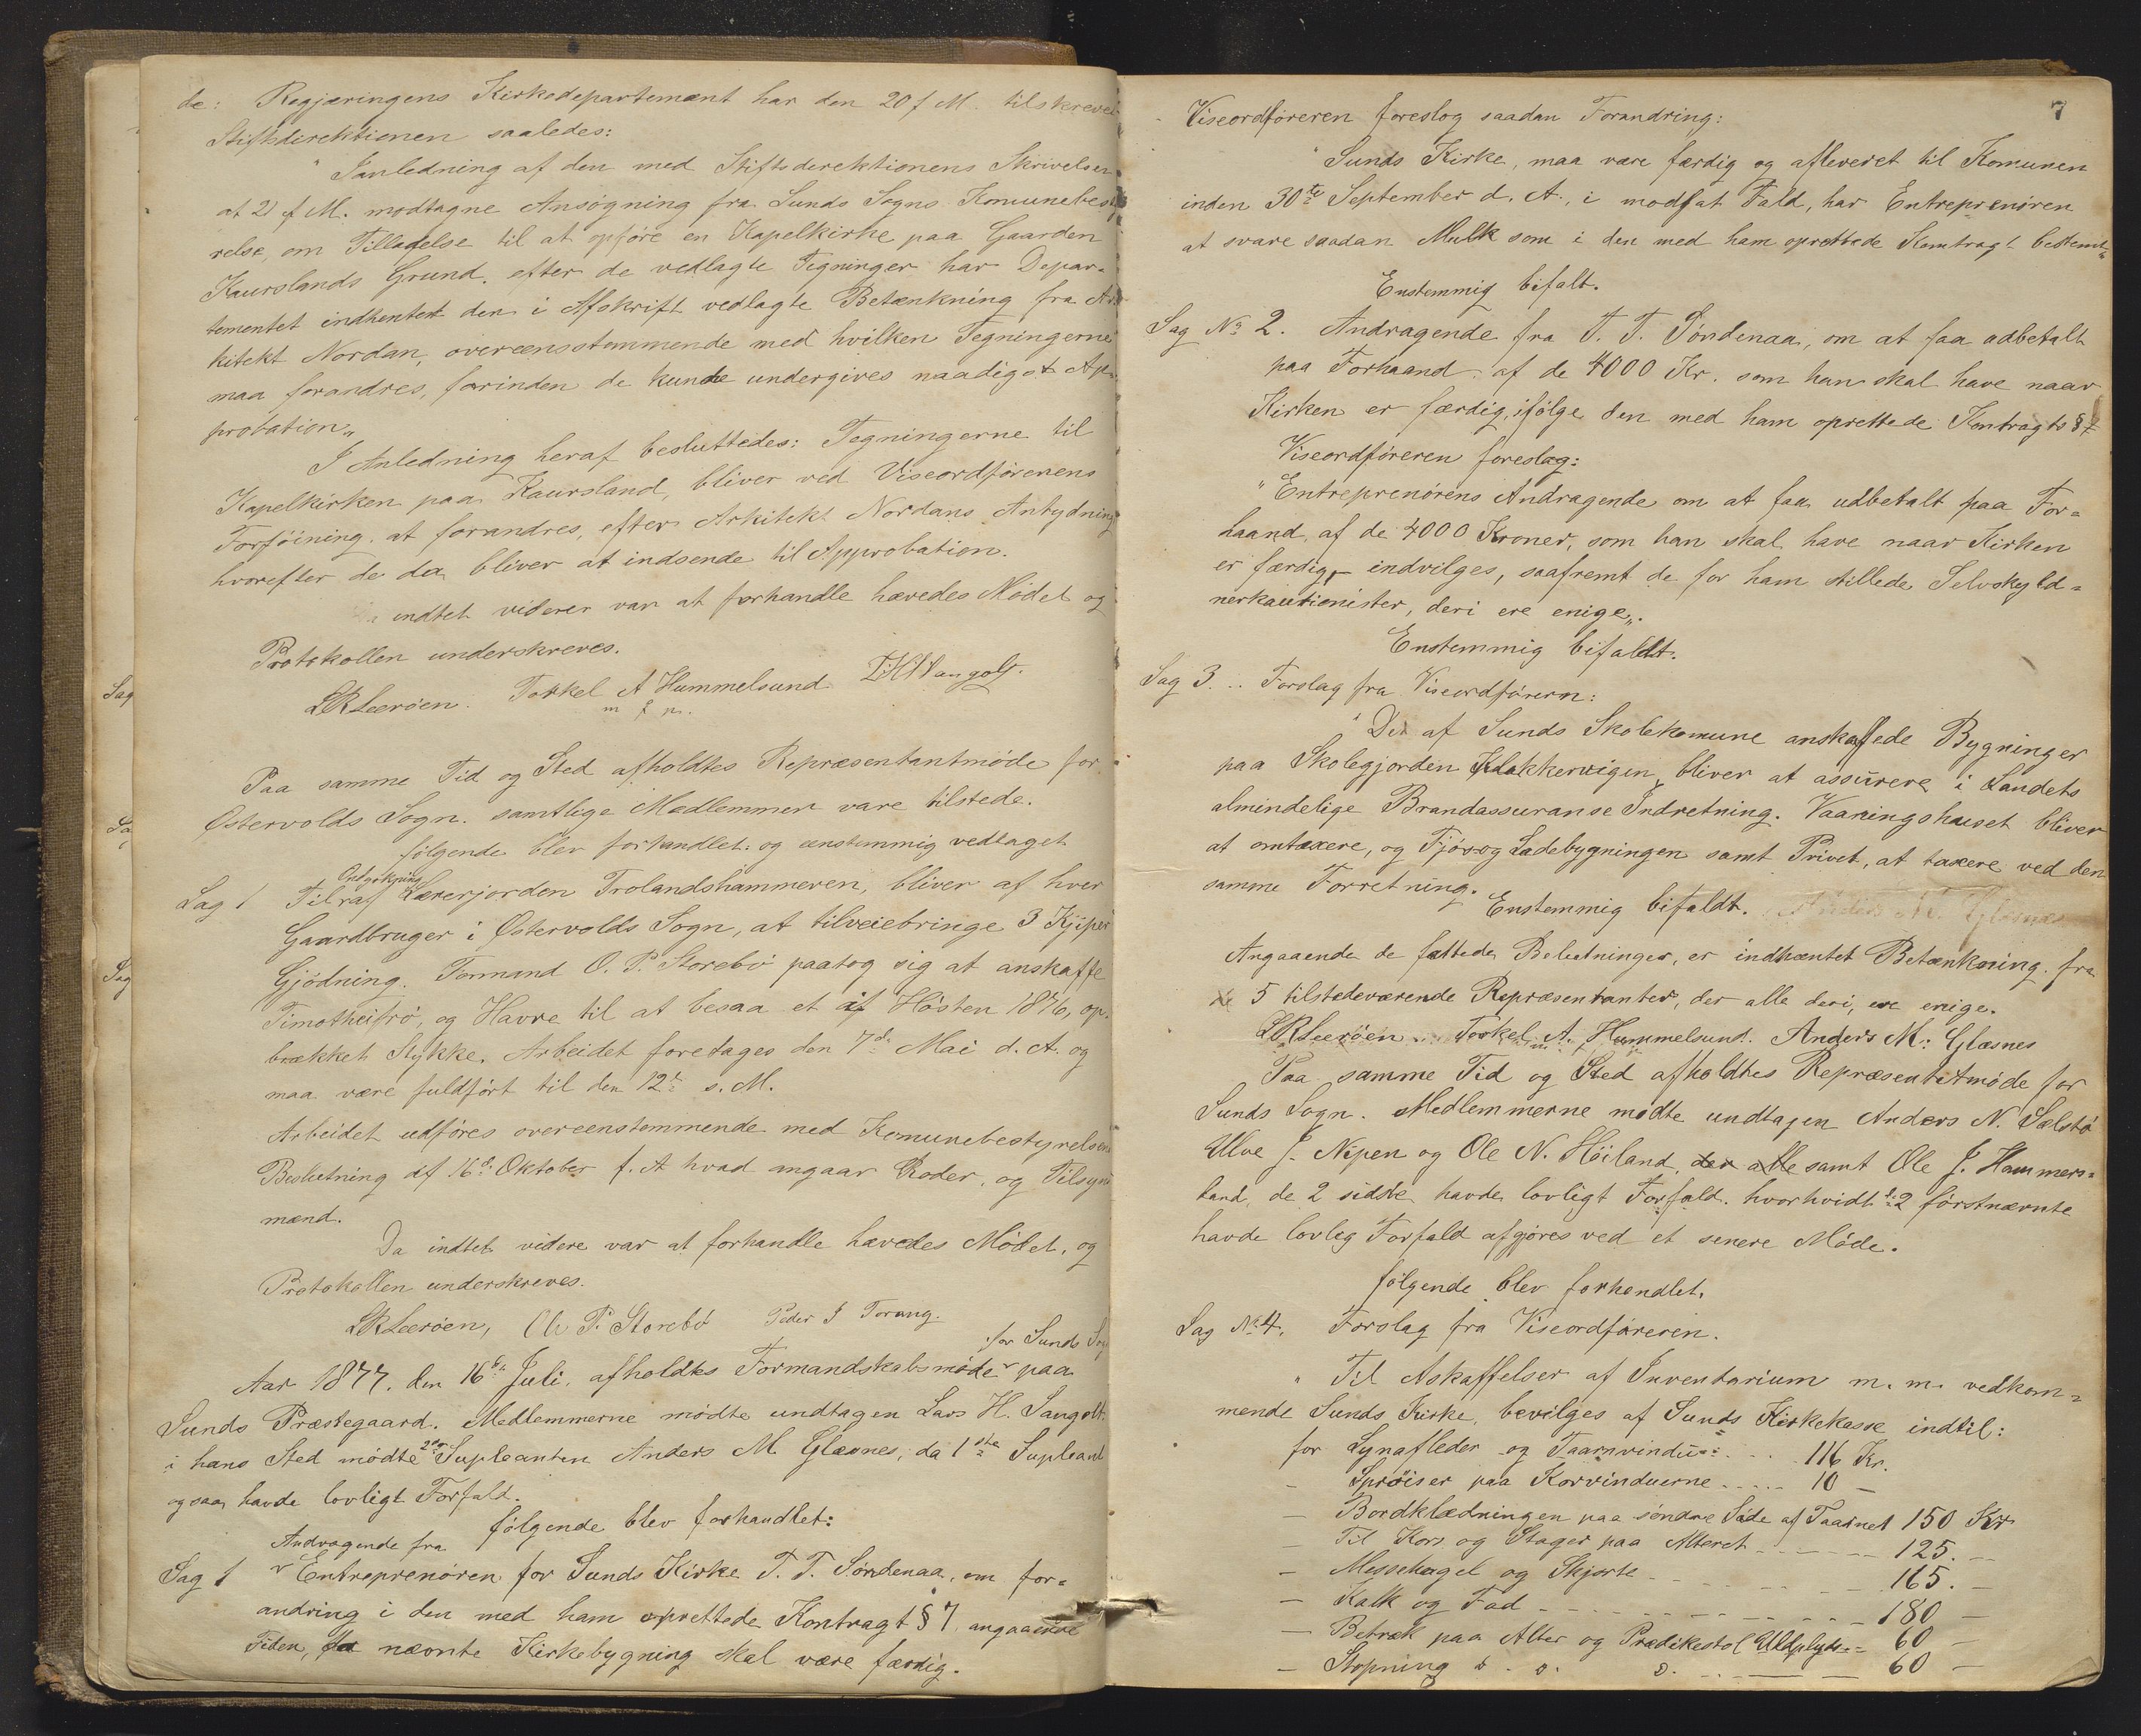 de: Regjæringens Kirkedepartement har den 20 f. M. tilskrevet
Stiftsdirektionen saaledes:
" I anledning af den med Stiftsderektionens Skrivelser
at 2 f. M. modtagne Ansøgning fra Sunds Sogns Komunebesty
relse, om Tilladelse til at opføre en Kapelkirke paa Gaarden
Kaurslands Grund, efter de vedlagte Tegninger har Depar-
tementet indhentet den i Afskrift vedlagte Betænkning fra Ar
kitekt Nordan, overeensstemmende med hvilken Tegningerne
maa forandres, forinden de kunde undergives naadigst Ap-
probation„
I Anledning heraf besluttedes: Tegningerne til
Kapelkirken paa Kaursland, bliver ved Viseordførerens
Forføining at forandres, efter Arkitekt Nordans Antydning
hvorefter de da bliver at indsende til Approbation.
Da indtet viderer var at forhandle hævedes Mødet og
Protokollen underskreves.
L R Leerøen. Torkel A Hummelsund
m f p.
Paa samme Tid og Sted afholdtes Repræsentantmøde for
Østervolds Sogn. samtlige Medlemmer vare tilstede.
følgende blev forhandlet: og enstemmig vedtaget
Opdyrkning
Sag 1 Til af Lærerjorden Trolandshammeren, bliver af hver
Gaardbruger i Østervolds Sogn, at tilveiebringe 3 Kjiper
Gjødning. Formand O. P. Storebø paatog sig at anskaffe
Timotheifrø, og Havre til at besaa et af Høsten 1876, op-
brækket Stykke. Arbeidet foretages den 7de Mai d. A. og
maa være fuldført til den 12te s. M.
Arbeidet udføres overeenstemmende med Komunebestyrelsens
Beslutning af 16de Oktober f. A hvad angaar Roder, og Tilsyns
mænd.
Da indtet videre var at forhandle hævedes Mødet, og
Protokollen underskreves.
L R Leerøen, Ole P. Storebø Peder J Torang.
for Sunds Sog
Aar 1877. den 16de Juli, afholdtes Formandskabsmøde paa
Sunds Præstegaard. Medlemmerne mødte undtagen Lars H. Sangolt
i hans Sted mødte 2den Supleanten Anders M Glæsnes, da 1ste Supleant
ogsaa havde lovligt Forfald.
følgende blev forhandlet:
Andragende fra
Sag 1 Entreprenøren for Sunds Kirke T. T. Søndenaa, om for-
andring i den med ham oprettede Kontragt § 7 angaaende
Tiden, da nævnte Kirkebygning skal være færdig.
7
Viseordføreren foreslog saadan Forandring:
" Sunds Kirke, maa være færdig og afleveret til Komunen
inden 30te September d. A., i modsat Fald, har Entreprenøren
at svare saadan Mulk som i den med ham oprettede Kontragt bestemt„
Enstemmig bifalt.
Sag No 2. Andragende fra T. T. Søndenaa, om at faa udbetalt
paa Forhaand af de 4000 Kr. som han skal have naar
Kirken er færdig, ifølge den med ham oprettede Kontragts § 7
Viseordføreren foreslog:
" Entreprenørens Andragende om at faa udbetalt paa For=
haand, af de 4000 Kroner, som han skal have naar Kirken
er færdig, – indvilges, saafremt de for ham stillede Selvskyld=
nerkautionister, deri ere enige„.
Enstemmig bifaldt.
Sag 3. .. Forslag fra Viseordførern:
" De af Sunds Skolekomune anskaffede Bygninger
paa Skolegjorden Klokkervigen, bliver at assurere i Landets
almindelige Brandassuranse Indretning. Vaaningshuset bliver
at omtaxere, og Fjøs og Ladebygningen samt Privet, at taxere ved den
samme Forretning.
Enstemmig bifaldt.
Angaaende de fattede Beslutninger, er indhæntet Betænkning fra
de 5 tilstedeværende Repræsentanter, der alle deri, ere enige.
L R Leerøen .. Torkel A. Hummelsund. Anders M: Glæsnes
Paa samme Tid og Sted afholdtes Repræsentetmøde for
Sunds Sogn. Medlemmerne mødte undtagen Anders N. Sælstø
Ulve J. Nipen og Ole N. Høiland, der alle samt Ole J. Hammers=
land, de 2 sidste havde lovligt Forfald. hvorhvidt de 2 førstnævnte
havde lovleg Forfald afgjøres ved et senere Møde.
følgende blev forhandlet.
Sag No 4. Forslag fra Viseordføreren.
" Til Askaffelser af Inventarium m. m. vedkom=
mende Sunds Kirke, bevilges af Sunds Kirkekasse indtil:
for Lynafleder og Taarnvindu: ... 116 Kr.
– Sprøiser paa Korvinduerne ..... 10 –
– Bordklædningen paa søndre Side af Taarnet 150 Kr
– Til Kors og Stager paa Alteret ---- 125. –
– Messehagel og Skjorte ------ 165. –
– Kalk og Fad ---------- 180 –
– Betræk paa Alter og Prædikestol Uldplyds -- 60 –
– Stopning d. o. d. ------ 60 –